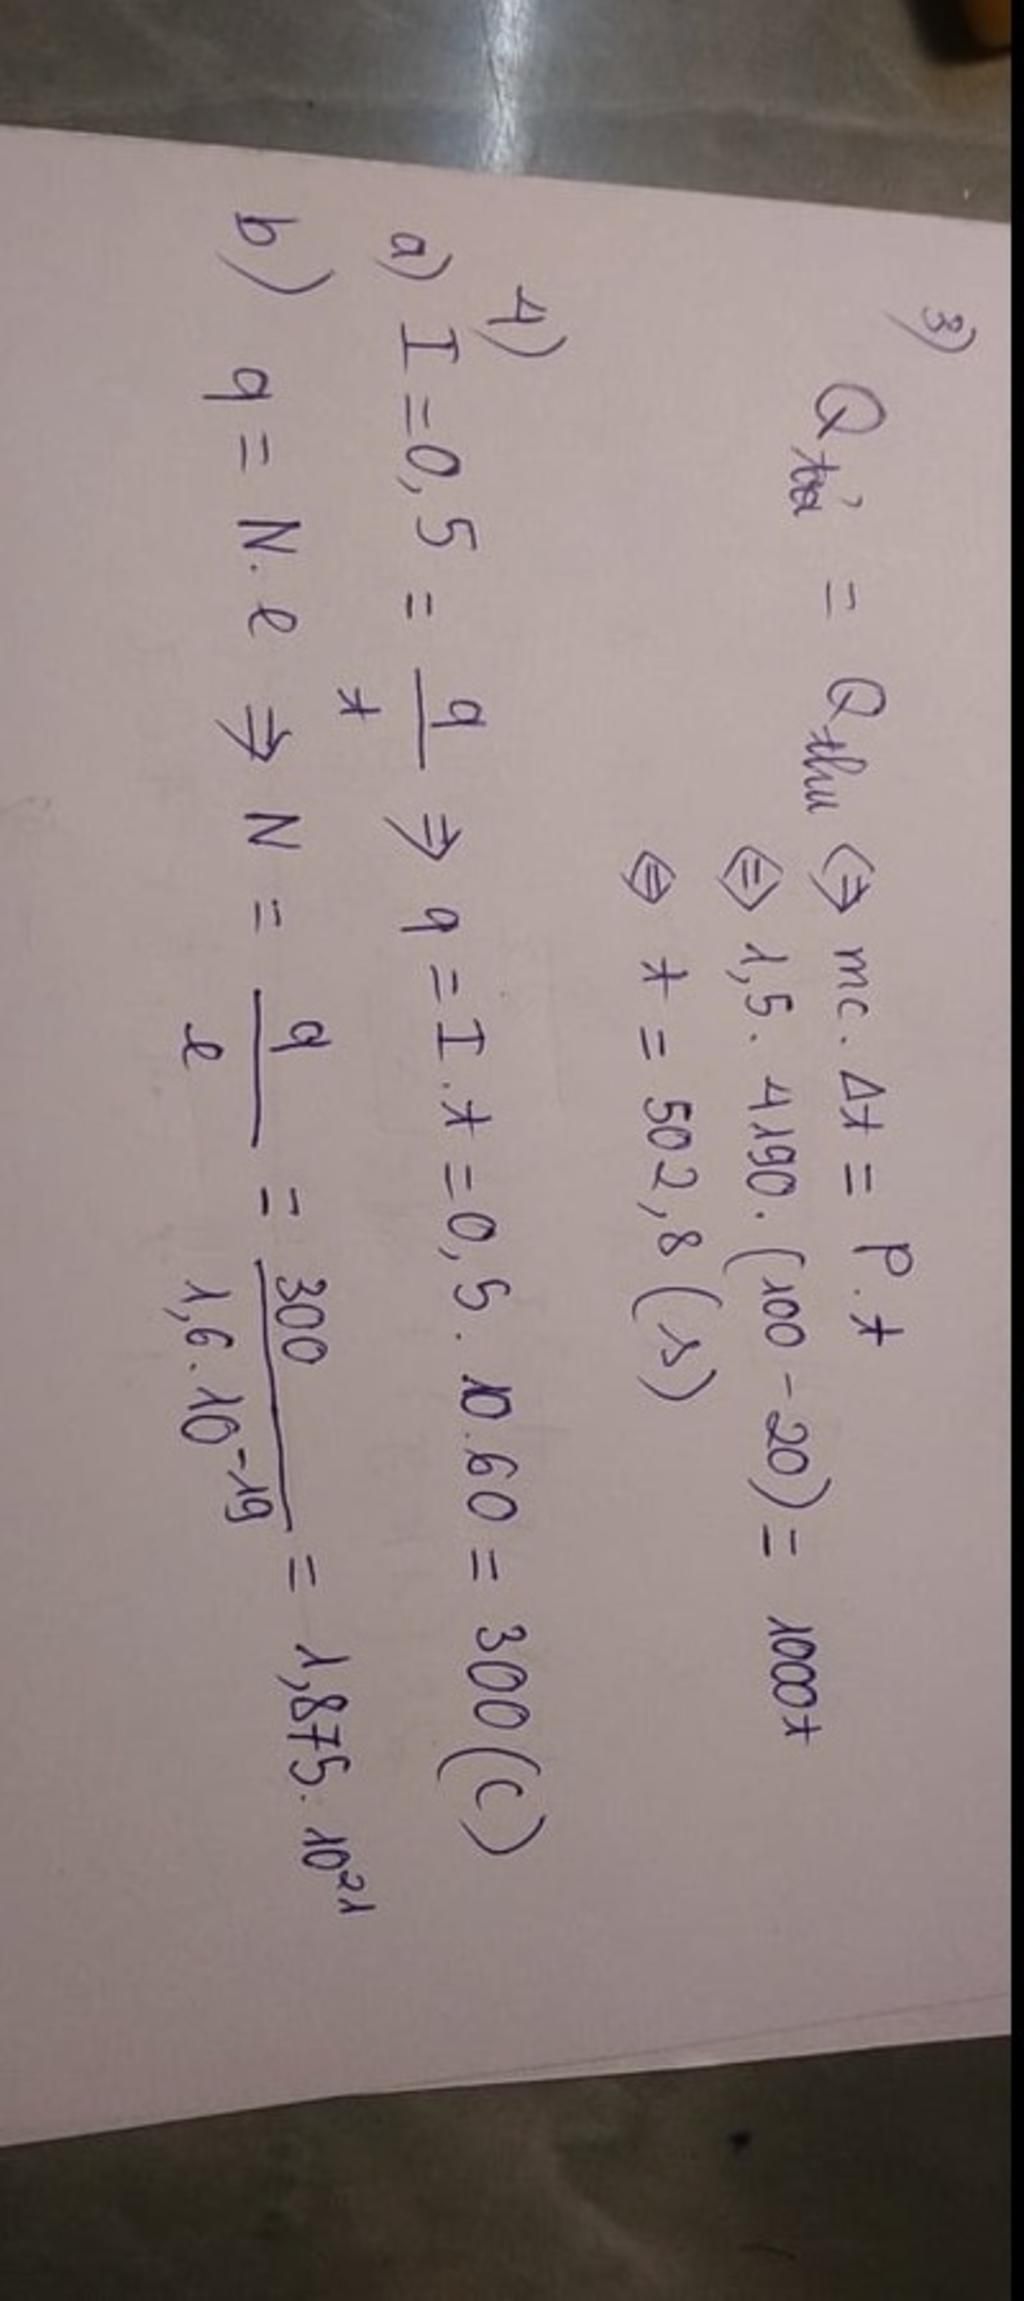 3)
Qtỏa = Qthu ⇔ mc.Δt = P.t
⇔ 1,5. 4190.(100-20) = 1000t
⇔ t = 502,8 (s)
4)
a) I = 0,5 = q/t ⇒ q = I.t = 0,5. 10.60 = 300 (C)
b) q = N.e ⇒ N = q/e = 300/1,6.10⁻¹⁹ = 1,875. 10²¹